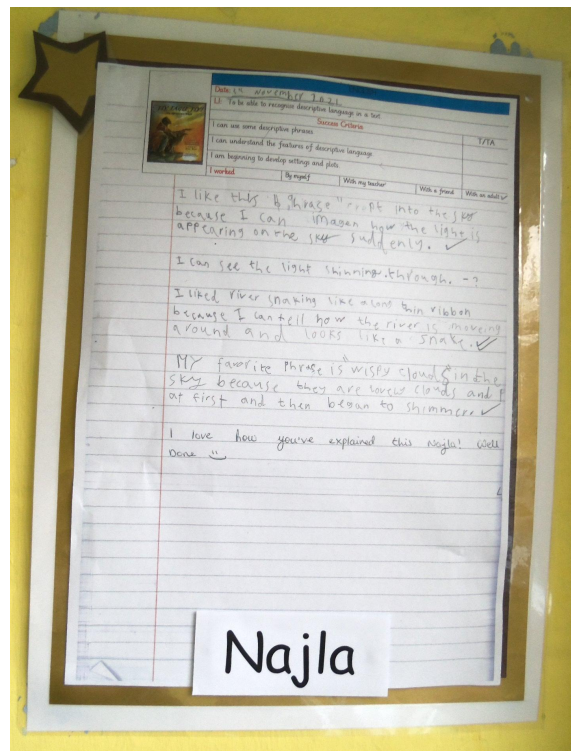 Date: November 2021
LI: To be able to recognise descriptive language in a text
Success Criteria
T/TA
I can use some descriptive phrases
I can understand the features of descriptive language
I am beginning to develop settings and plots
I worked
By myself
With my teacher
With a friend
With an adult
I like this phrase into the sky
because I can imagen how the light is
appearing on the sky suddenly. ✓
I can see the light shinning through. - ?
I liked river snaking like a long thin ribbon
because I can tell how the river is moveing
around and looks like a snake. ✓
MY favorite phrase is "wispy clouds in the
sky because they are lovely clouds and
at first and then began to shimmer. ✓
I love how you've explained this Najla! Well
Done
Najla